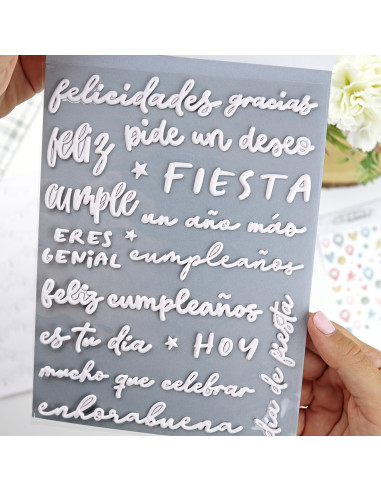 felicidades gracias
feliz pide un deseo
FIESTA
cumple un año más
ERES
GENIAL cumpleaños
feliz cumpleaños
es tu día HOY
mucho que celebrar
enhorabuena
día de fiesta